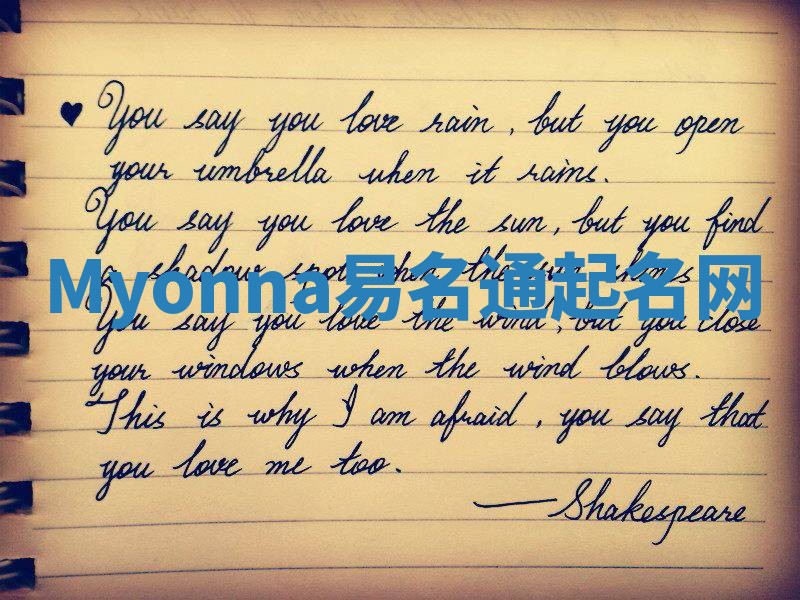 ♥ You say you love rain, but you open
your umbrella when it rains.
You say you love the sun, but you find
a shadow spot when the sun shines
Myonna易名通起名网
You say you love the wind, but you close
your windows when the wind blows.
This is why I am afraid, you say that
you love me too.
—Shakespeare